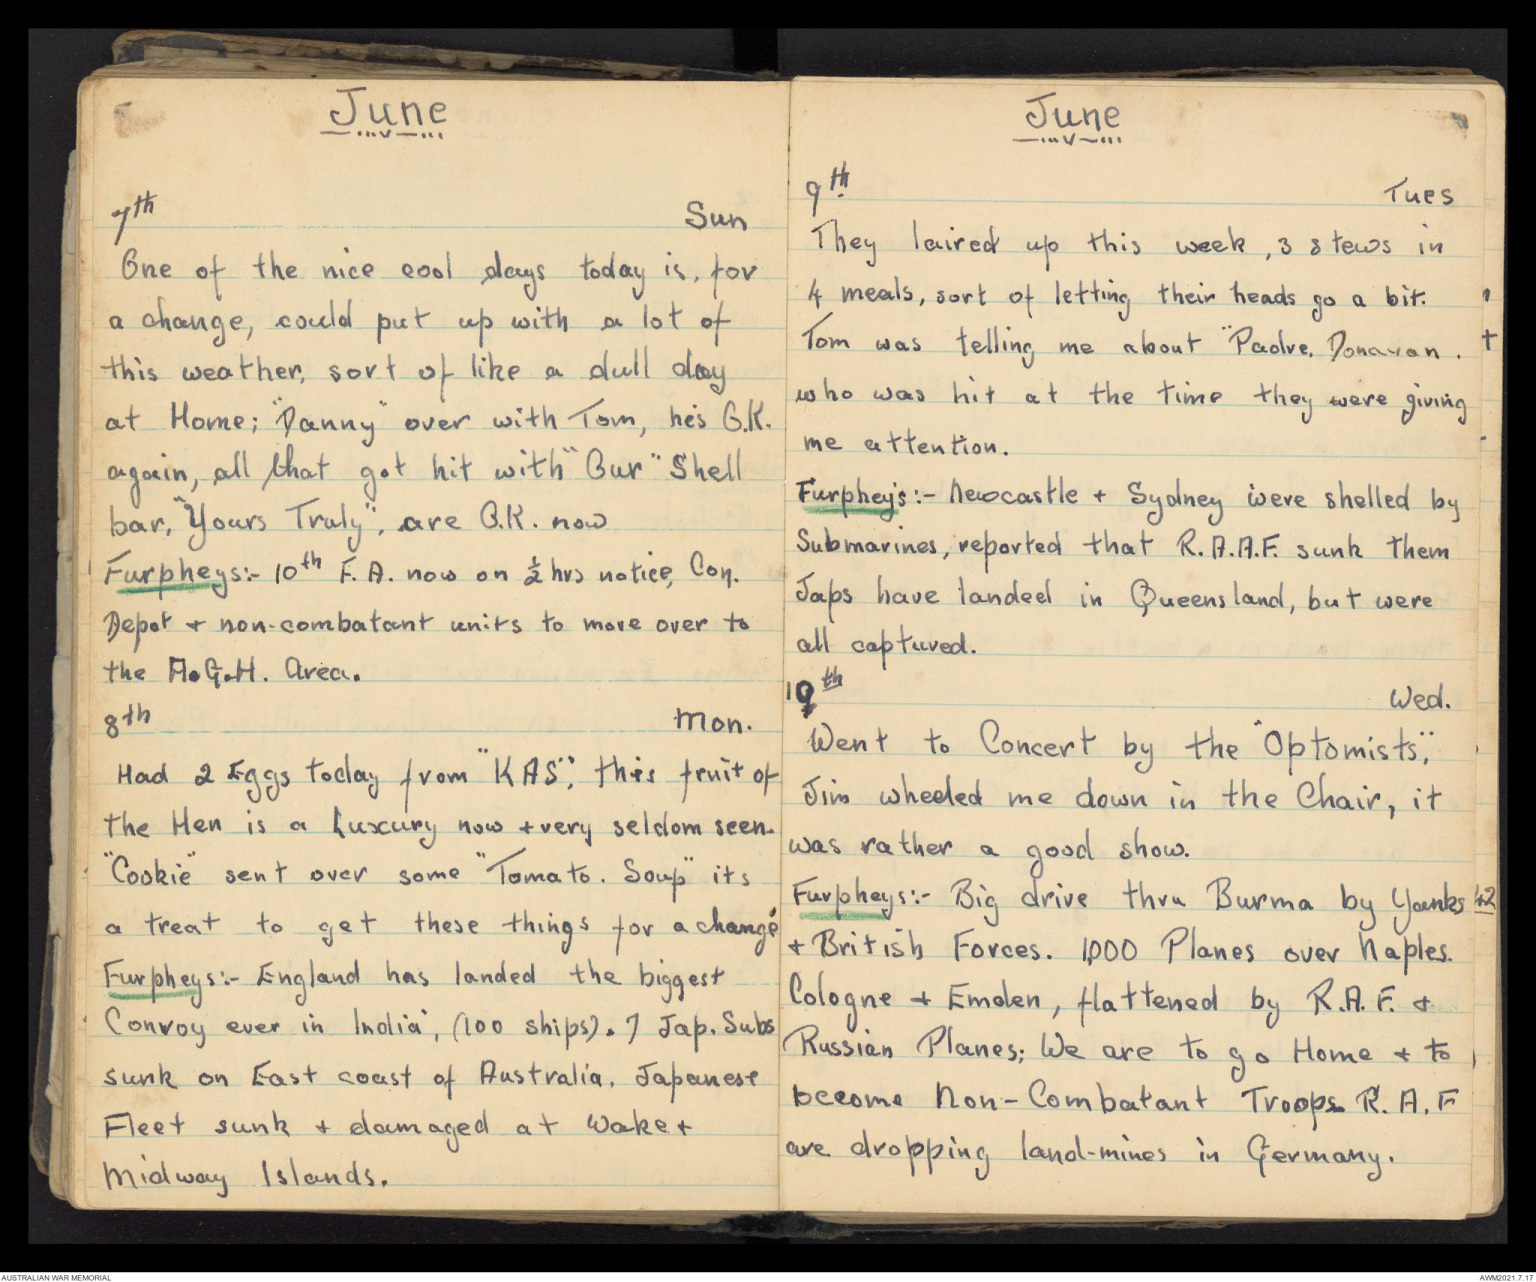 June
7th Sun
One of the nice cool days today is, for
a change, could put up with a lot of
this weather, sort of like a dull day
at Home; "Danny" over with Tom, he's O.K.
again, all that got hit with "Our" Shell
bar, "Yours Truly", are O.K. now
Furpheys:- 10th F.A. now on ½ hrs notice, Con.
Depot + non-combatant units to move over to
the A.G.H. Area.
8th Mon.
Had 2 Eggs today from "KAS", this fruit of
the Hen is a Luxury now + very seldom seen.
"Cookie" sent over some "Tomato. Soup" its
a treat to get these things for a change
Furpheys:- England has landed the biggest
Convoy ever in India, (100 ships). 7 Jap. Subs
sunk on East coast of Australia. Japanese
Fleet sunk + damaged at Wake +
Midway Islands.
June
9th Tues
They laired up this week, 3 stews in
4 meals, sort of letting their heads go a bit.
Tom was telling me about "Padre. Donavan.
who was hit at the time they were giving
me attention.
Furphey's:- Newcastle + Sydney were shelled by
Submarines, reported that R.A.A.F. sunk them
Japs have landed in Queensland, but were
all captured.
10th Wed.
Went to Concert by the "Optomists",
Jim wheeled me down in the Chair, it
was rather a good show.
Furpheys:- Big drive thru Burma by Yanks
+ British Forces. 1,000 Planes over Naples.
Cologne + Emden, flattened by R.A.F. +
Russian Planes; We are to go Home + to
become Non-Combatant Troops. R.A.F
are dropping land-mines in Germany.
42
AUSTRALIAN WAR MEMORIAL
AWM2021.7.17